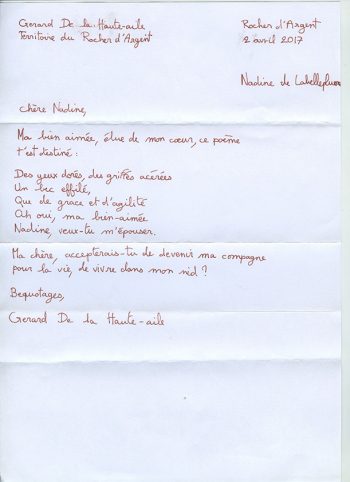 Gerard De la Haute-aile
Rocher d'Argent
Territoire du Rocher d'Argent
2 avril 2017
Nadine de Labelleplume
chère Nadine,
Ma bien aimée, élue de mon cœur, ce poème
t'est destiné :
Des yeux dorés, des griffes acérées
Un bec effilé,
Que de grace et d'agilité
Ah oui, ma bien-aimée
Nadine, veux-tu m'épouser.
Ma chère, accepterais-tu de devenir ma compagne
pour la vie, de vivre dans mon nid ?
Bequotages,
Gerard De la Haute-aile